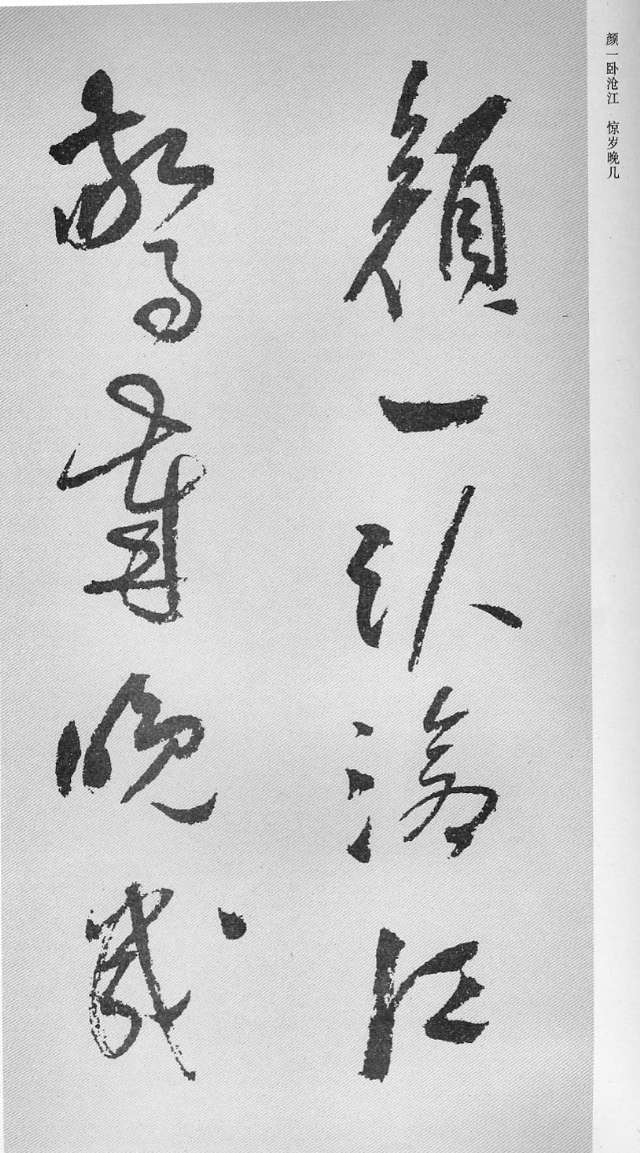 顔一卧滄江
驚歲晚幾
颜一卧沧江 惊岁晚几